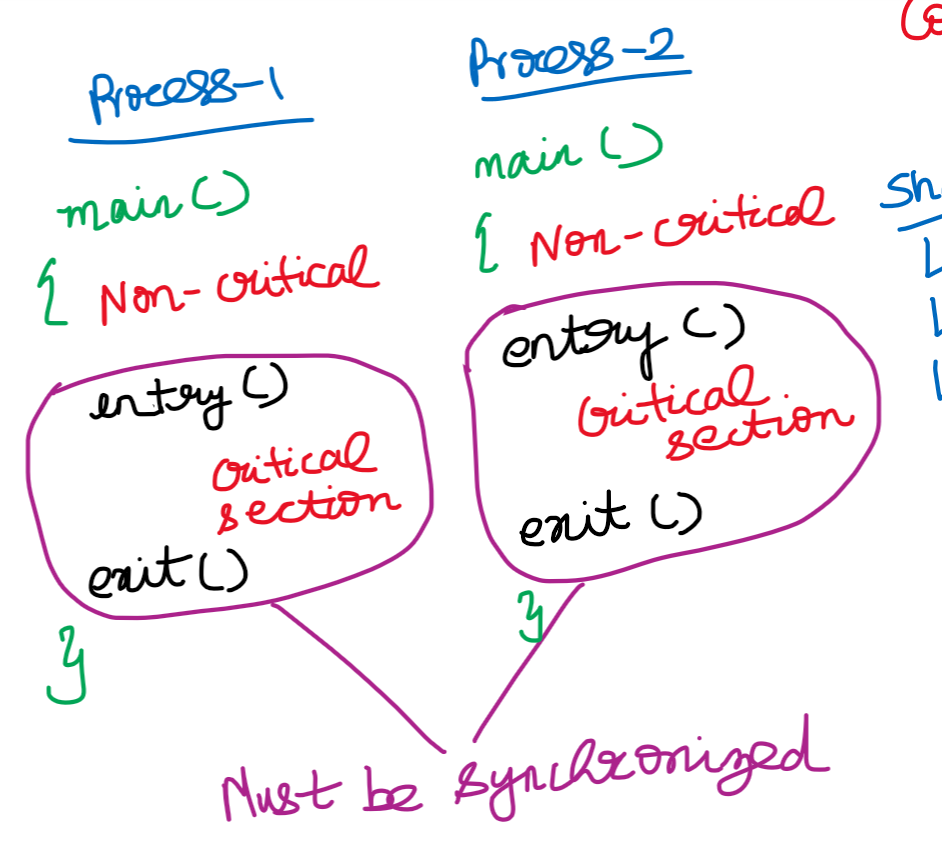 Process-1
main()
{ Non-critical
entry()
critical
section
exit()
}
Process-2
main()
{ Non-critical
entry()
critical
section
exit()
}
Must be synchronized